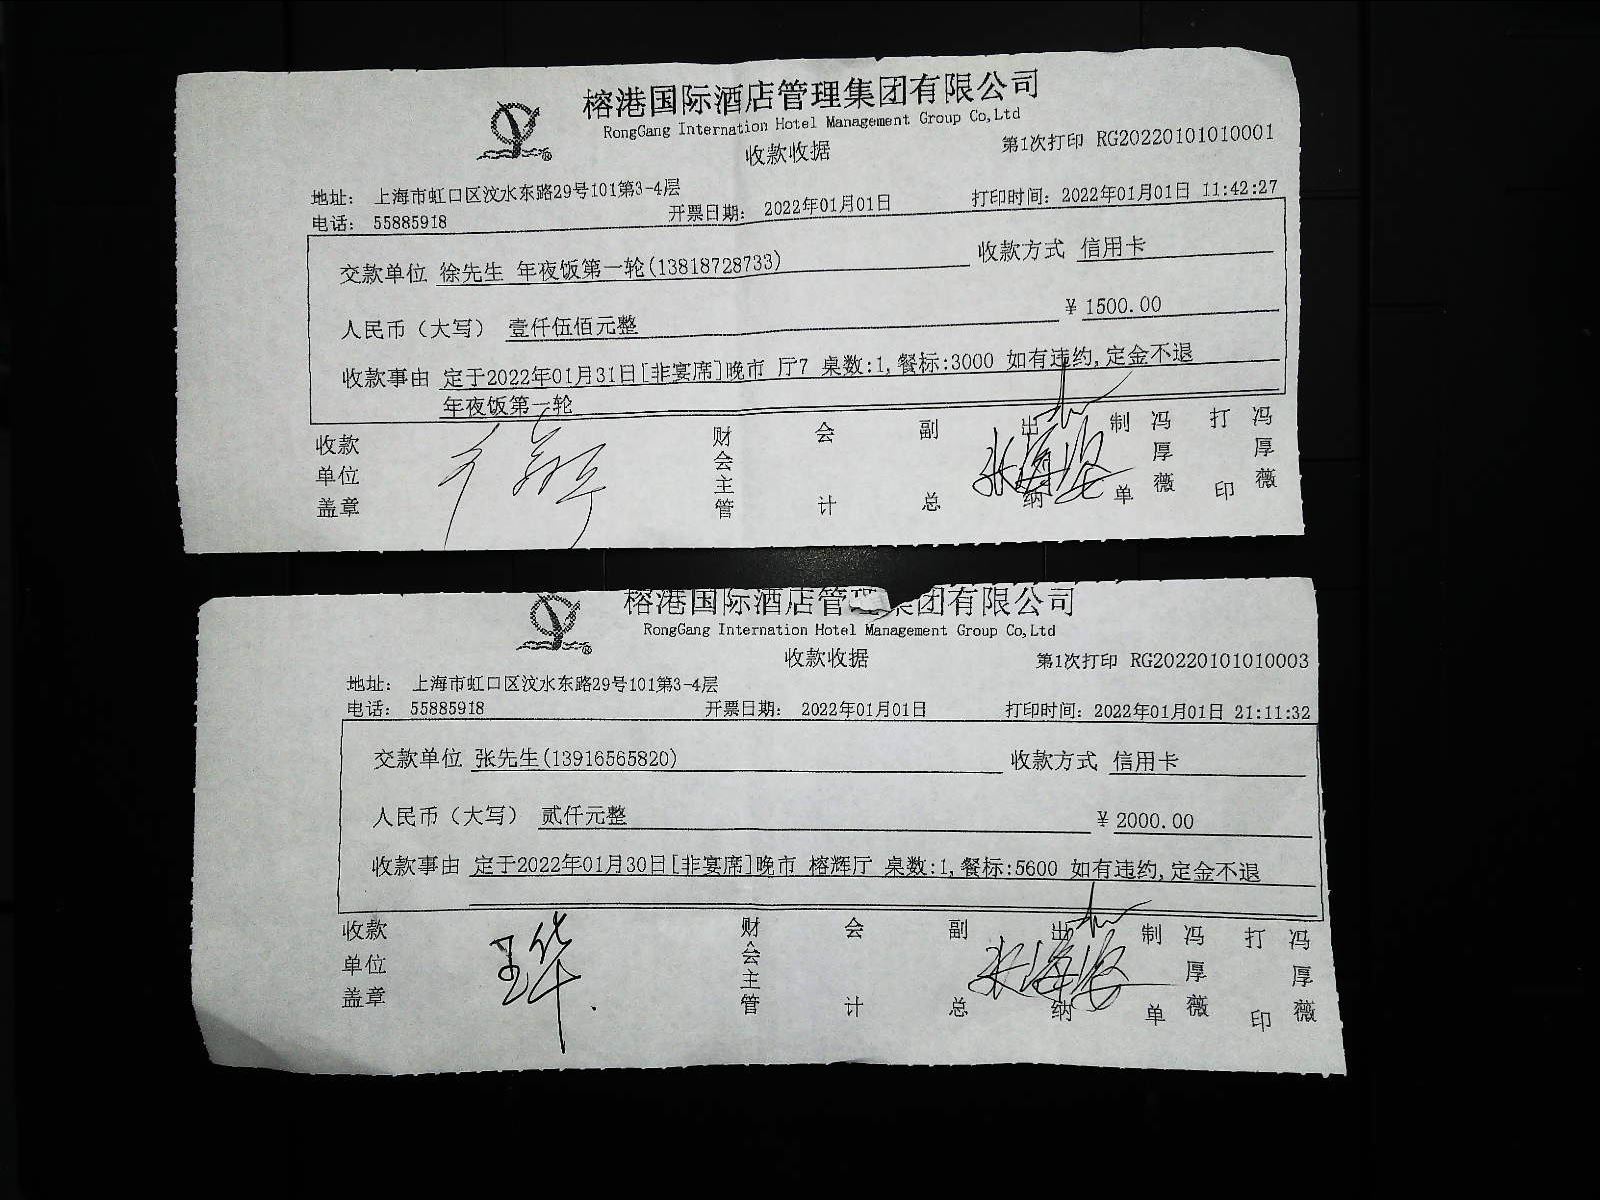 榕港国际酒店管理集团有限公司
RongGang Internation Hotel Management Group Co,Ltd
收款收据
第1次打印 RG20220101010001
地址： 上海市虹口区汶水东路29号101第3-4层
电话： 55885918 开票日期： 2022年01月01日 打印时间：2022年01月01日 11:42:27
交款单位 徐先生 年夜饭第一轮(13818728733) 收款方式 信用卡
人民币（大写） 壹仟伍佰元整 ¥ 1500.00
收款事由 定于2022年01月31日[非宴席]晚市 厅7 桌数:1,餐标:3000 如有违约,定金不退
年夜饭第一轮
收款单位盖章 财会主管 会计 副总 出纳 张海燕 制单 冯厚薇 打印 冯厚薇
榕港国际酒店管理集团有限公司
RongGang Internation Hotel Management Group Co,Ltd
收款收据
第1次打印 RG20220101010003
地址： 上海市虹口区汶水东路29号101第3-4层
电话： 55885918 开票日期： 2022年01月01日 打印时间：2022年01月01日 21:11:32
交款单位 张先生(13916565820) 收款方式 信用卡
人民币（大写） 贰仟元整 ¥ 2000.00
收款事由 定于2022年01月30日[非宴席]晚市 榕辉厅 桌数:1,餐标:5600 如有违约,定金不退
收款单位盖章 王华 财会主管 会计 副总 出纳 张海燕 制单 冯厚薇 打印 冯厚薇